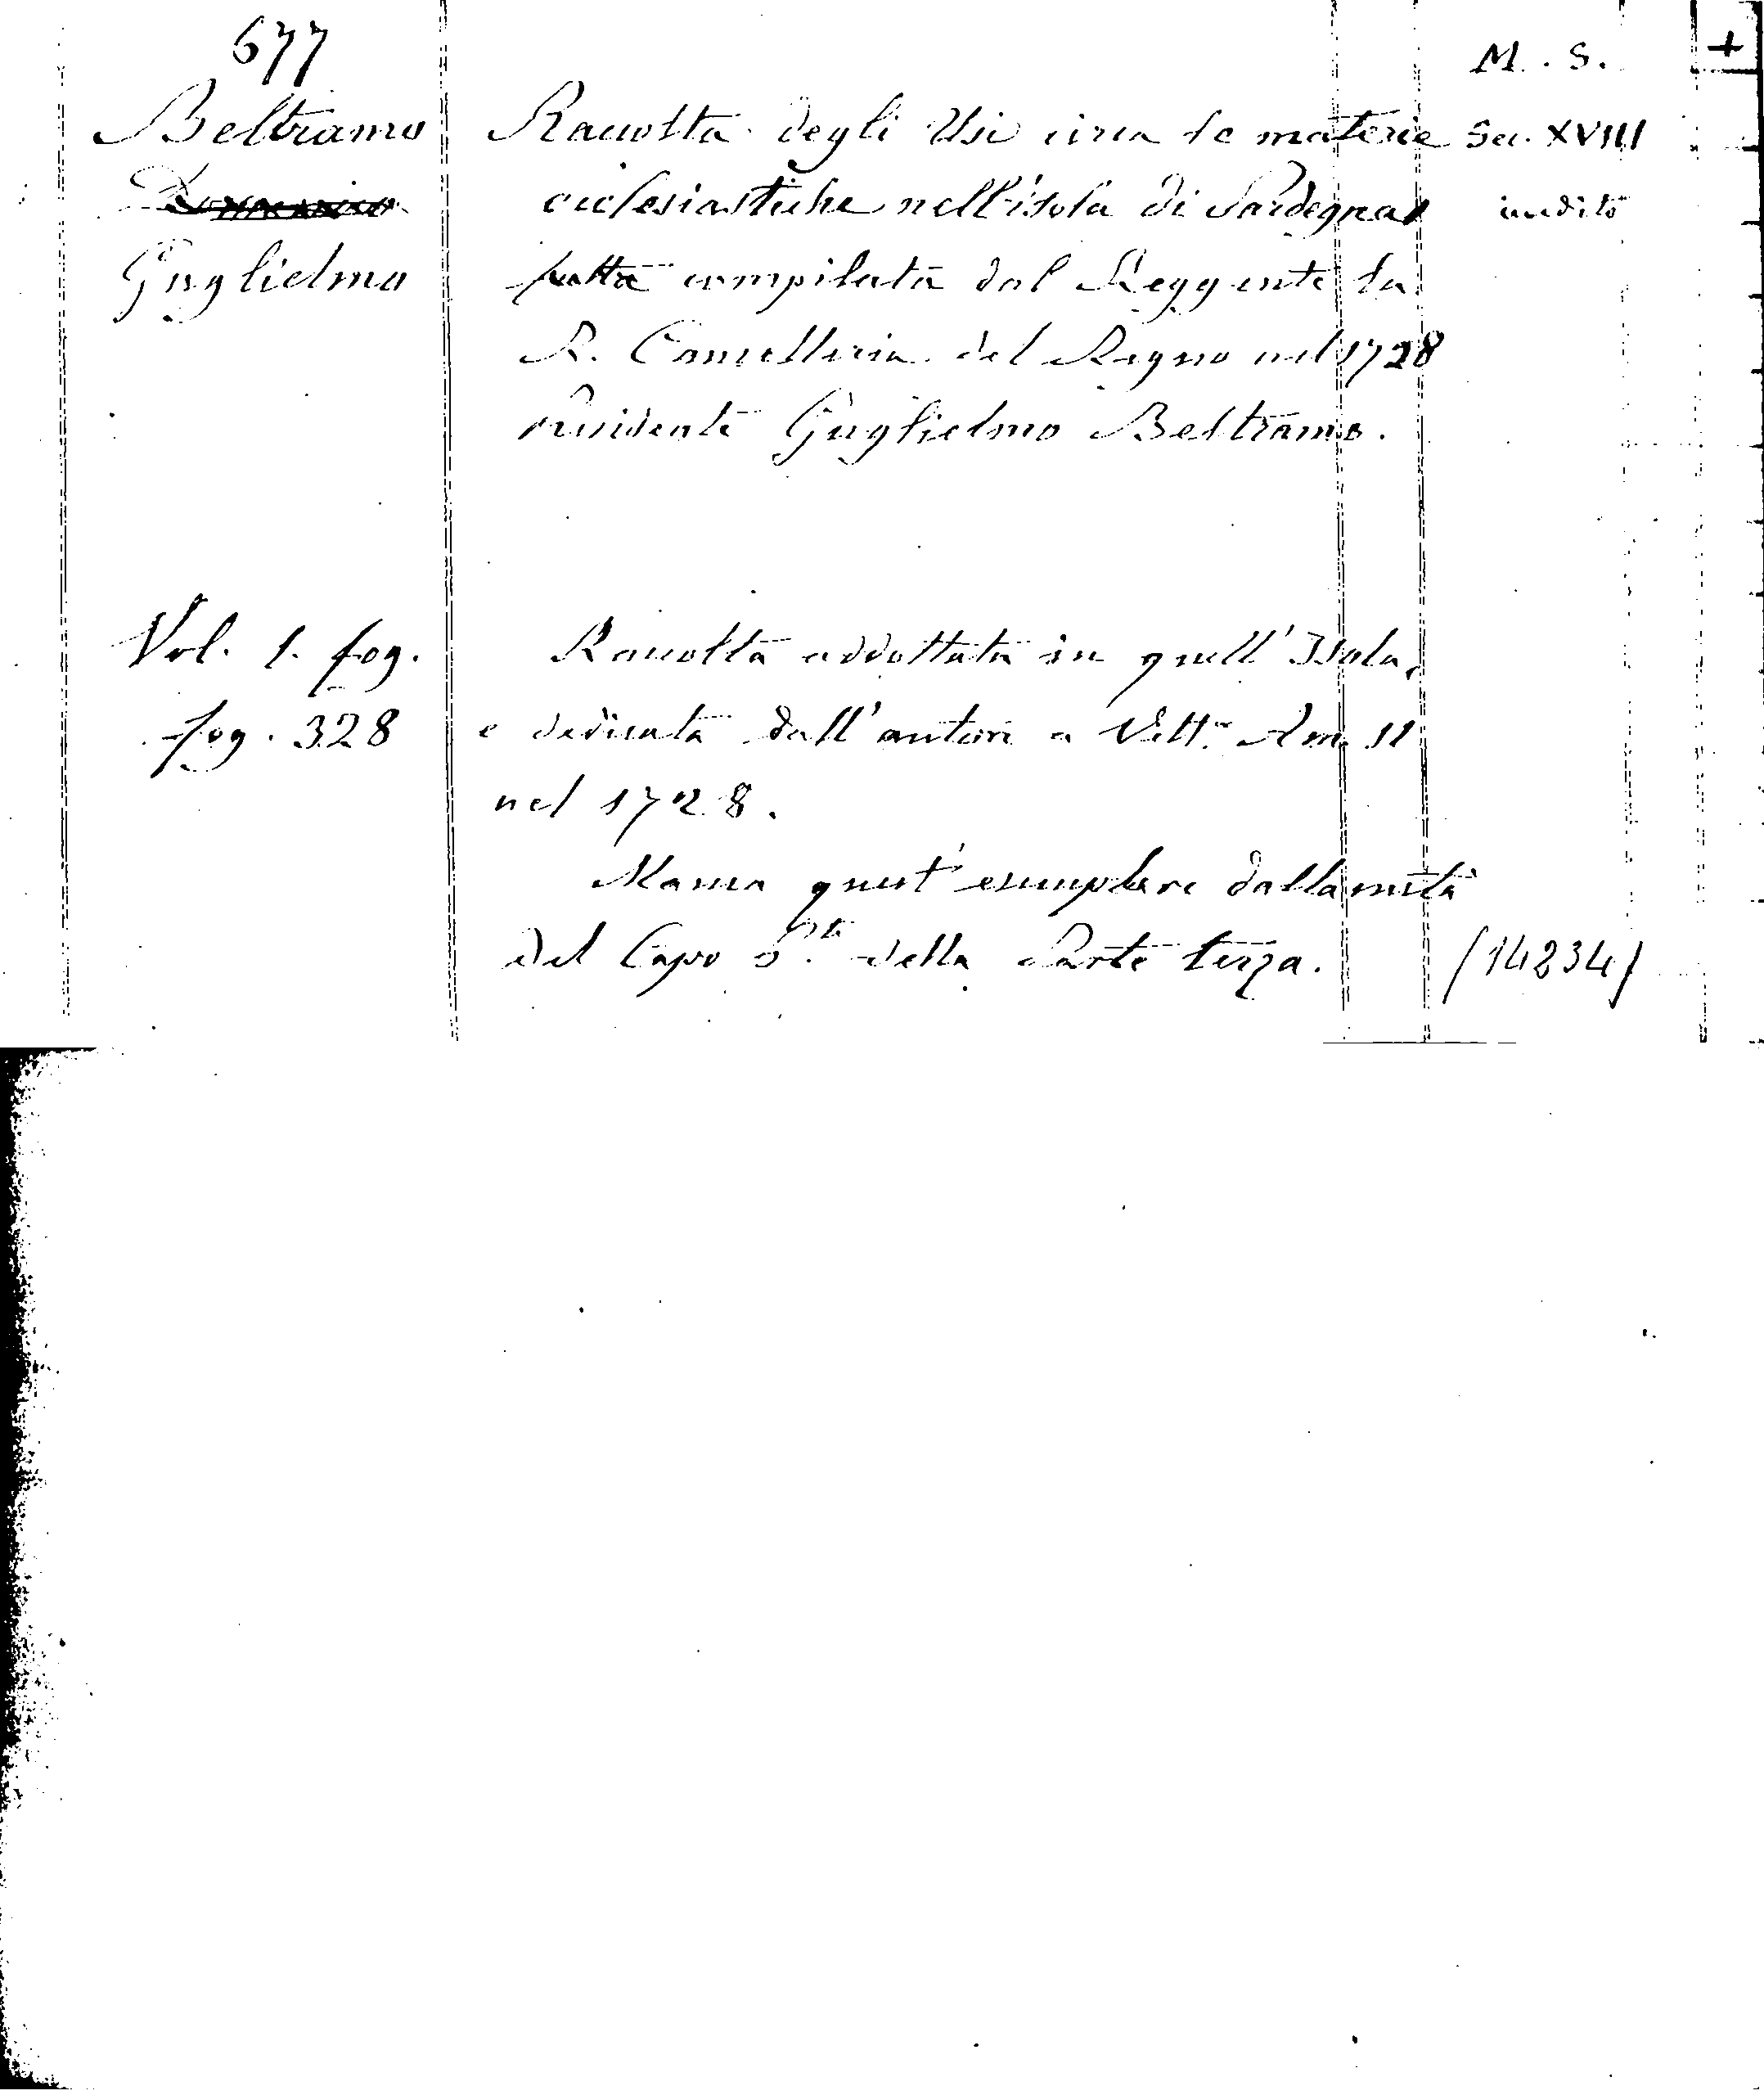 677
M. S. +
Beltramo
Guglielmo
Raccolta degli Usi circa le materie
ecclesiastiche nell'isola di Sardegna
fatta compilata dal Reggente la
R. Cancelleria del Regno nel 1728
Presidente Guglielmo Beltramo.
Sec. XVIII
inedito
Vol. 1. fog.
fog. 328
Raccolta addottata in quell'Isola,
e dedicata dall'autore a Vitt.o Am. II
nel 1728.
Manca quest'esemplare dalla metà
del Capo della Parte terza.
(14234)